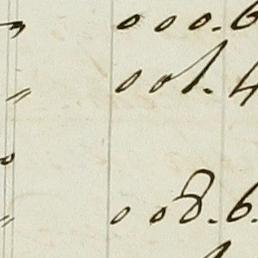 000.6
" 001.4
0
" 008.6.